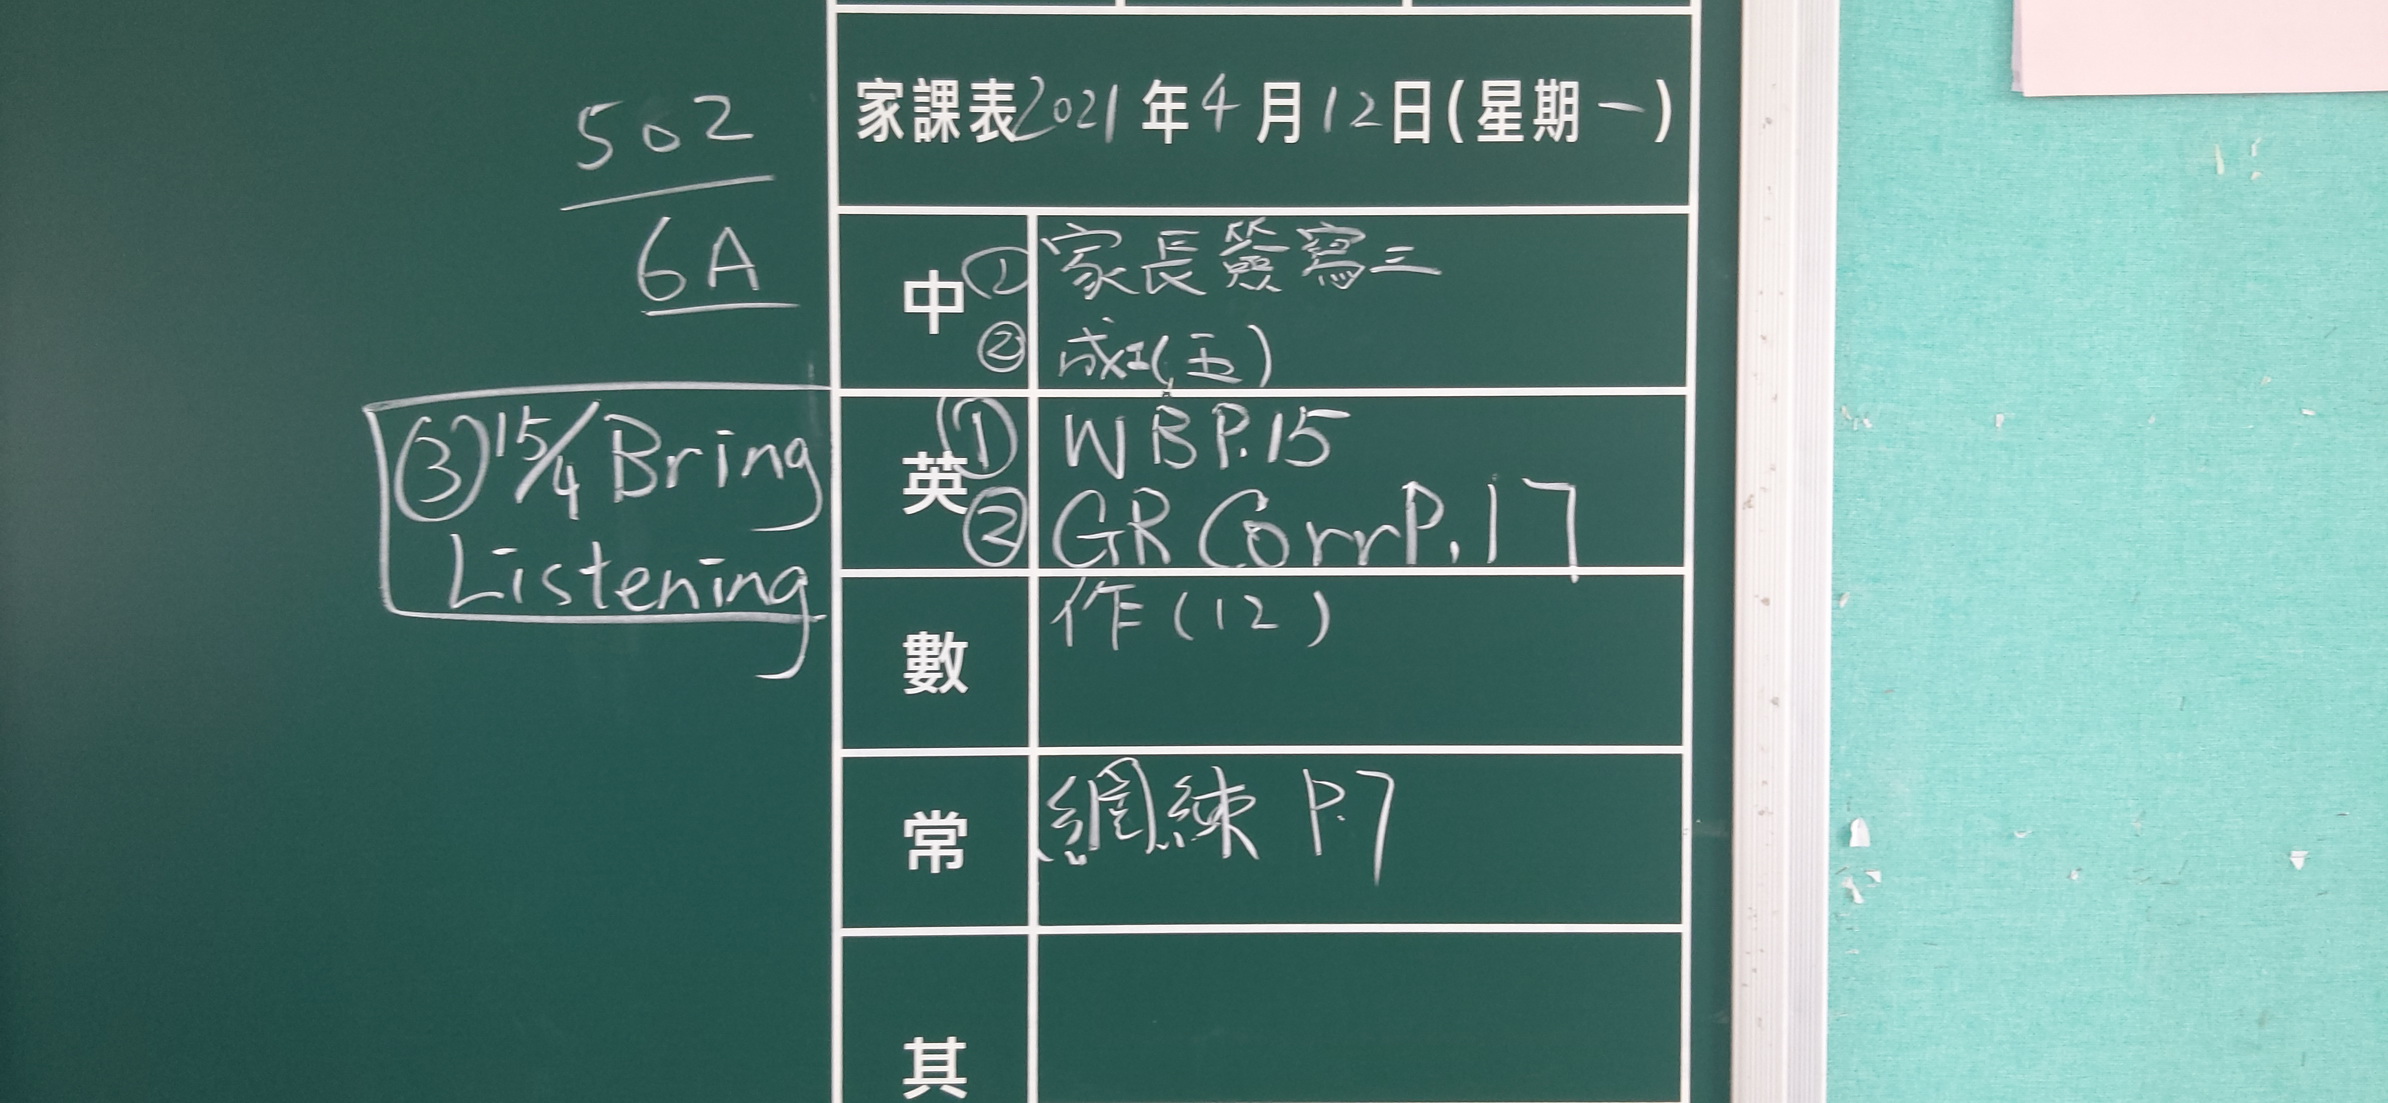 502
6A
家課表2021年4月12日(星期一)
中
①家長簽寫三
②成工(五)
英
①WB P.15
②GR Corr P.17
③15/4 Bring
Listening
數
作(12)
常
網練 P.7
其